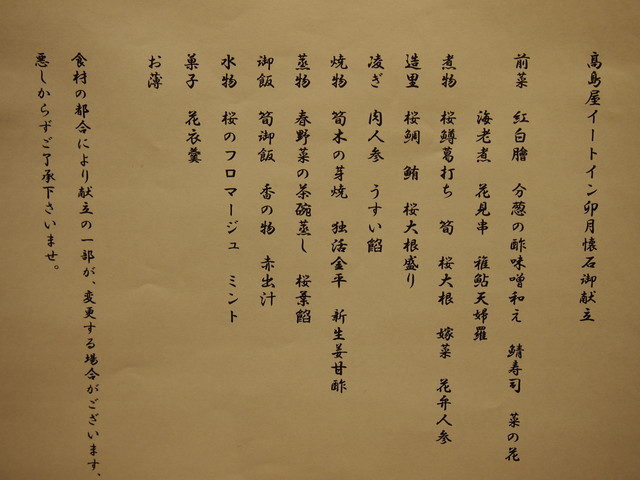 高島屋イートイン卯月懐石御献立
前菜 紅白膾 分葱の酢味噌和え 鯖寿司 菜の花
海老煮 花見串 稚鮎天婦羅
煮物 桜鱒葛打ち 筍 桜大根 嫁菜 花弁人参
造里 桜鯛 鮪 桜大根盛り
凌ぎ 肉人参 うすい餡
焼物 筍木の芽焼 独活金平 新生姜甘酢
蒸物 春野菜の茶碗蒸し 桜葉餡
御飯 筍御飯 香の物 赤出汁
水物 桜のフロマージュ ミント
菓子 花衣羹
お薄
食材の都合により献立の一部が、変更する場合がございます、
悪しからずご了承下さいませ。